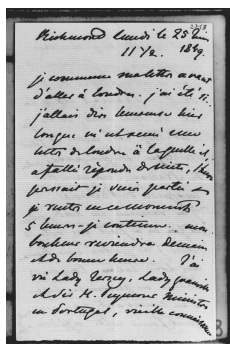 Richmond lundi le 25 juin
11 1/2. 1849.
je commence ma lettre avant
d'aller à Londres. j'ai été si
j'allais dire heureuse hier
lorsque m'est une
lettre de Londres à laquelle il
a fallu répondre de suite,
je suis partie
je rentre en ce moment
5 heures - je continue. mon
bonheur reviendra demain
et de bonne heure. J'ai
vu Lady Jersey, Lady
M. Seymour ministre
en Portugal, vieille